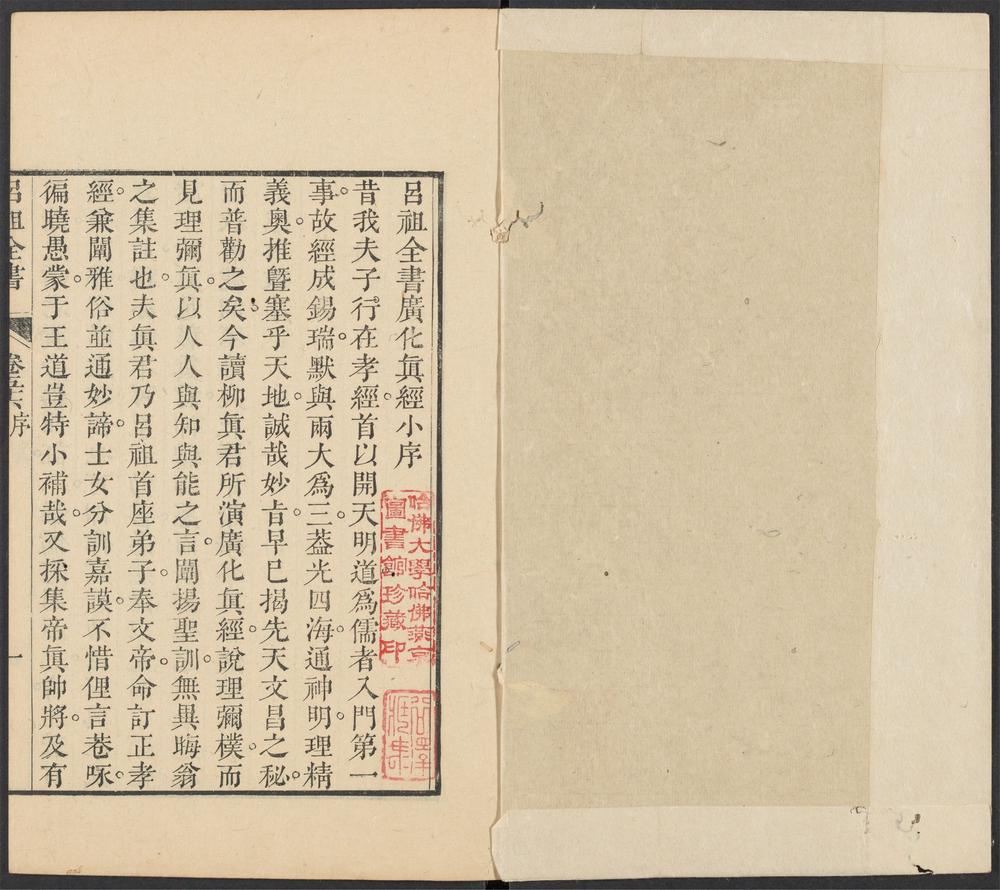 呂祖全書廣化眞經小序
昔我夫子行在孝經首以開天明道爲儒者入門第一
事故經成錫瑞默與兩大爲三葢光四海通神明理精
義奧推曁塞乎天地誠哉妙旨早已揭先天文昌之秘
而普勸之矣今讀柳眞君所演廣化眞經說理彌樸而
見理彌眞以人人與知與能之言闡揚聖訓無異晦翁
之集註也夫眞君乃呂祖首座弟子奉文帝命訂正孝
經兼闡雅俗並通妙諦士女分訓嘉謨不惜俚言巷咏
徧曉愚蒙于王道豈特小補哉又採集帝眞帥將及有
呂祖全書 序 一
哈佛大學哈佛燕京
圖書館珍藏印